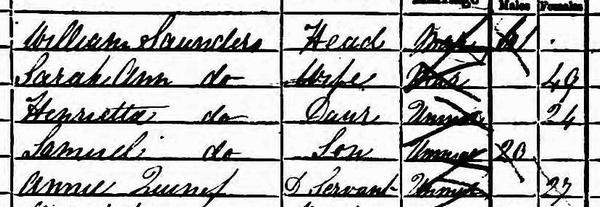 Males Females
William Saunders Head Mar 61
Sarah Ann do Wife Mar 49
Henrietta do Daur Unmar 24
Samuel do Son Unmar 20
Annie D Servant Unmar 27